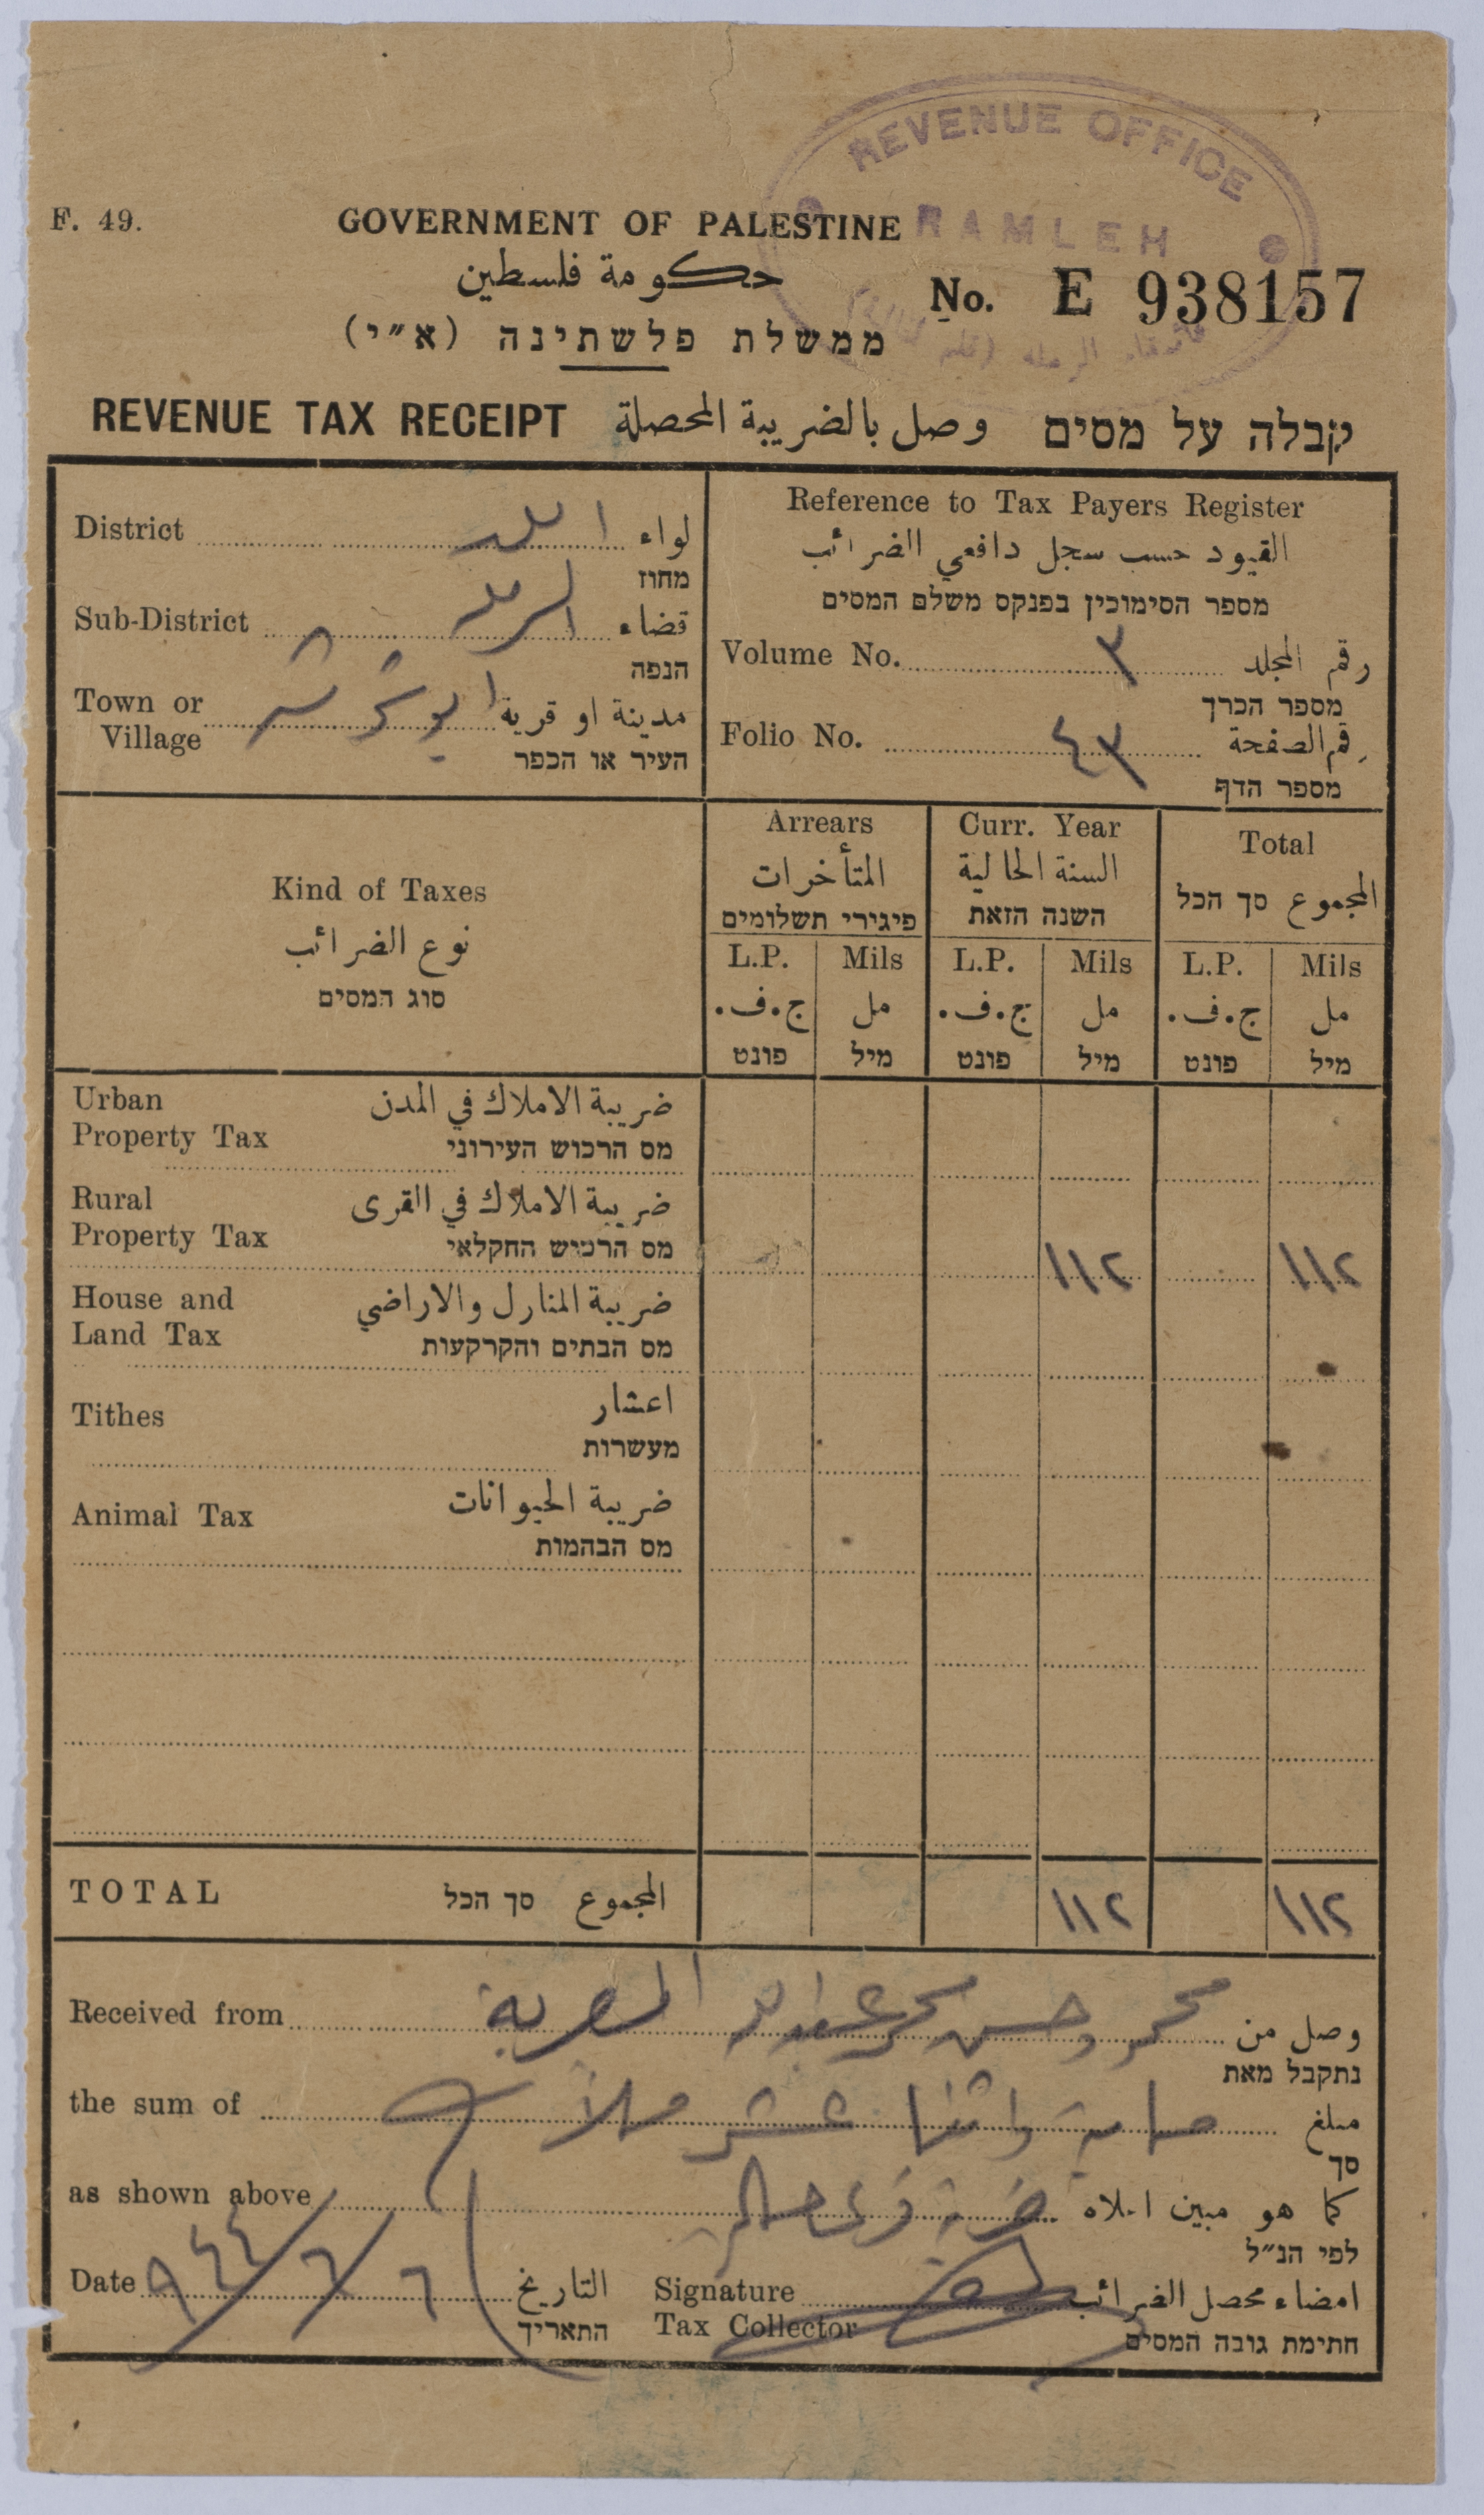 REVENUE OFFICE
RAMLEH
F. 49.
GOVERNMENT OF PALESTINE
حكومة فلسطين
ממשלת פלשתינה (א״י)
No. E 938157
REVENUE TAX RECEIPT وصل بالضريبة المحصلة קבלה על מסים
District اللد لواء
מחוז
Sub-District الرمله قضاء
הנפה
Town or Village ابو شوشه مدينة او قرية
העיר או הכפר
Reference to Tax Payers Register
القيود حسب سجل دافعي الضرائب
מספר הסימוכין בפנקס משלם המסים
Volume No. ٣ رقم المجلد
מספר הכרך
Folio No. ٤٣ رقم الصفحة
מספר הדף
Kind of Taxes
نوع الضرائب
סוג המסים
Arrears
المتأخرات
פיגירי תשלומים
Curr. Year
السنة الحالية
השנה הזאת
Total
المجموع סך הכל
L.P. Mils L.P. Mils L.P. Mils
ج.ف. مل ج.ف. مل ج.ف. مل
פונט מיל פונט מיל פונט מיל
Urban Property Tax ضريبة الاملاك في المدن
מס הרכוש העירוני
Rural Property Tax ضريبة الاملاك في القرى
מס הרכוש החקלאי ١١٢ ١١٢
House and Land Tax ضريبة المنازل والاراضي
מס הבתים והקרקעות
Tithes اعشار
מעשרות
Animal Tax ضريبة الحيوانات
מס הבהמות
TOTAL המجموع סך הכל ١١٢ ١١٢
Received from محمد وحسن محمد عبدالله المصرية وصل من
נתקבל מאת
the sum of ماية واثنا عشر ملا مبلغ
סך
as shown above كما هو مبين اعلاه
לפי הנ״ל
Date ٦/٦/٩٤٤ التاريخ
התאריך
Signature Tax Collector امضاء محصل الضرائب
חתימת גובה המסים